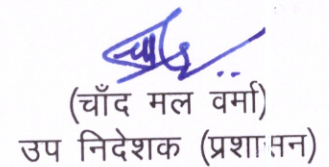 (चाँद मल वर्मा)
उप निदेशक (प्रशासन)